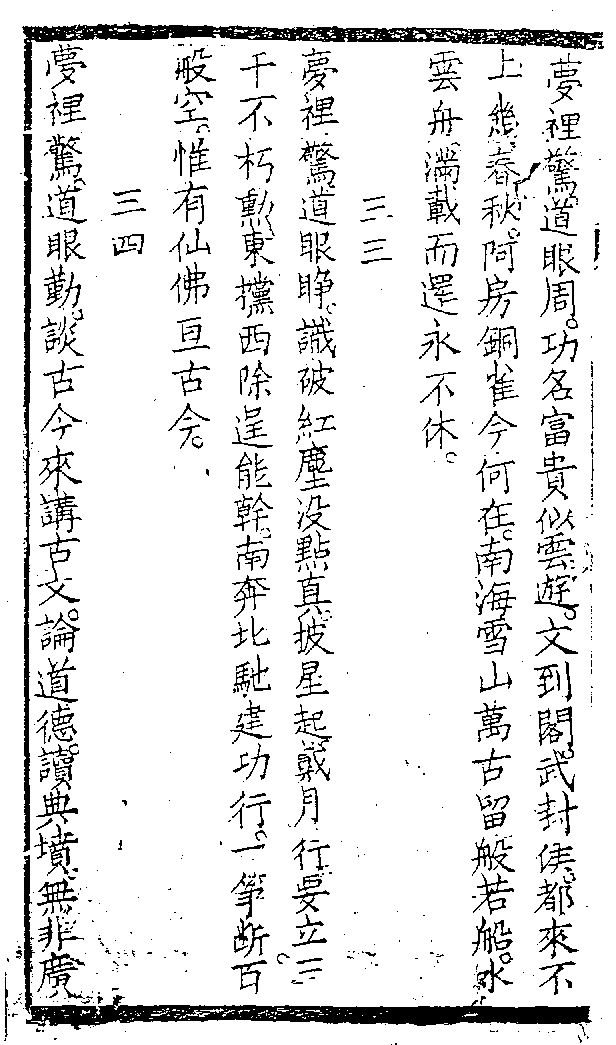 夢裡驚。道眼周。功名富貴似雲遊。文到閣。武封侯。都來不
上幾春秋。阿房銅雀今何在。南海雪山萬古留。般若船。水
雲舟。滿載而還永不休。
三三
夢裡驚。道眼睜。識破紅塵没點真。披星起。戴月行。要立三
千不朽勳。東攩西除逞能幹。南奔北馳建功行。一筆断。百
般空。惟有仙佛亘古今。
三四
夢裡驚。道眼勤。談古今來講古文。論道德。讀典墳。無非廣